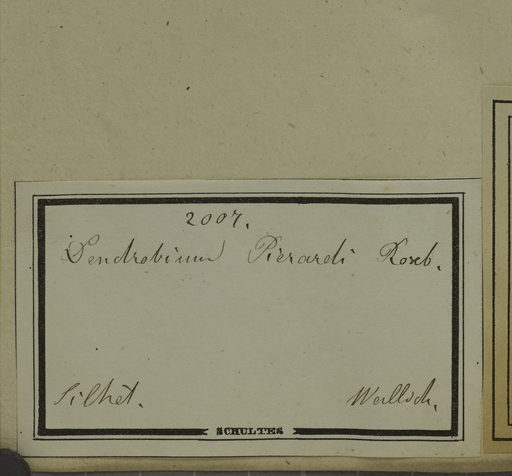 2007.
Dendrobium Pierardi Roxb.
Silhet. Wallich.
SCHULTES